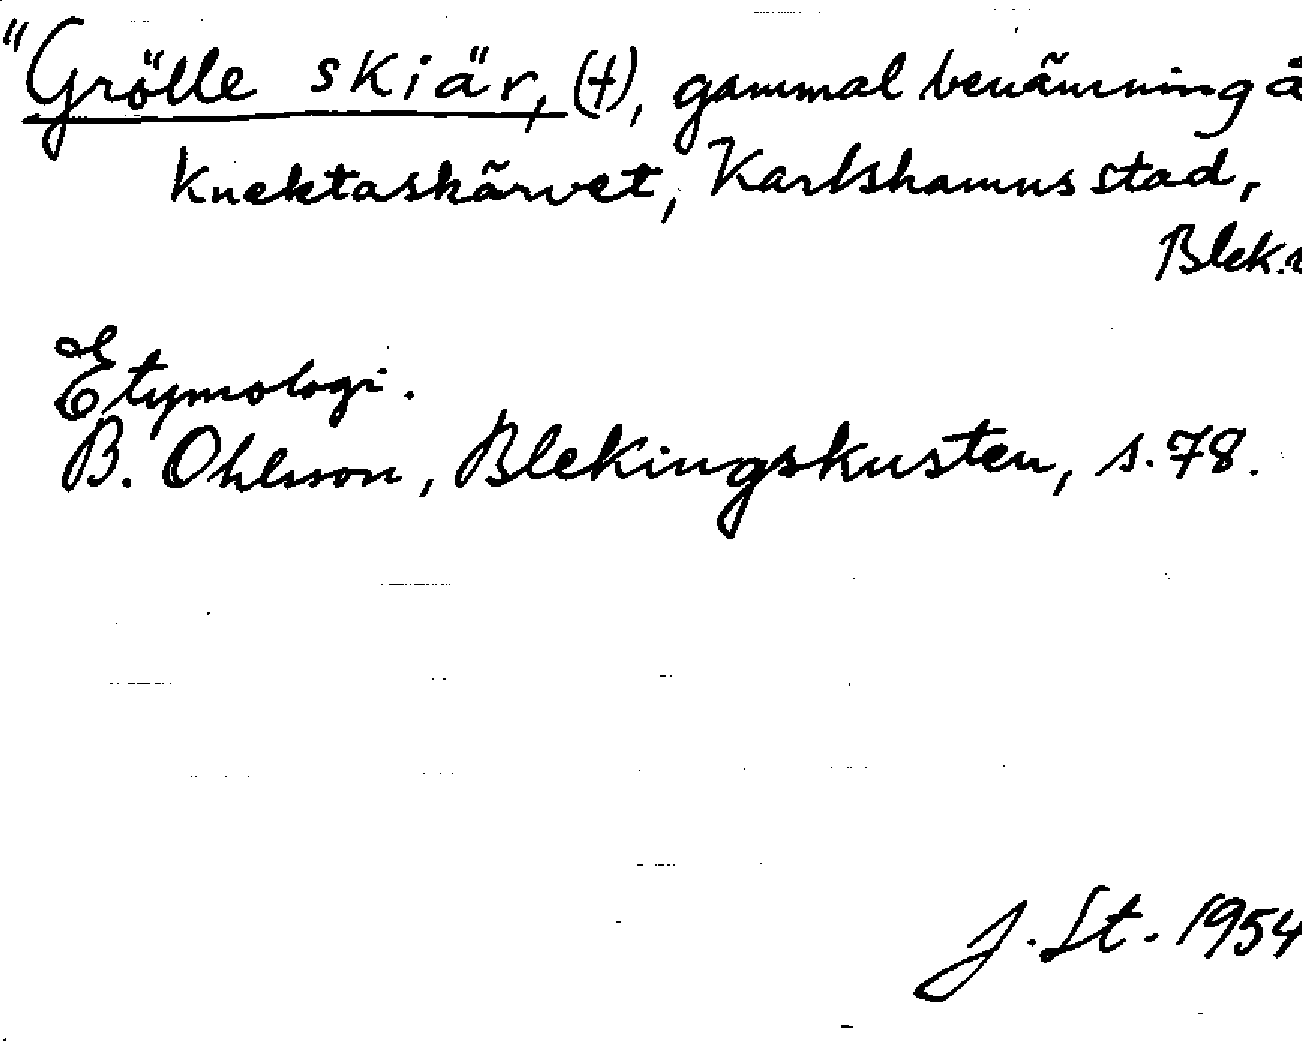 "Grölle skiär, (†), gammal benämning å
Knektaskärvet, Karlshamns stad,
Blek.
Etymologi.
B. Ohlsson, Blekingskusten, s. 78.
J. St. 1954